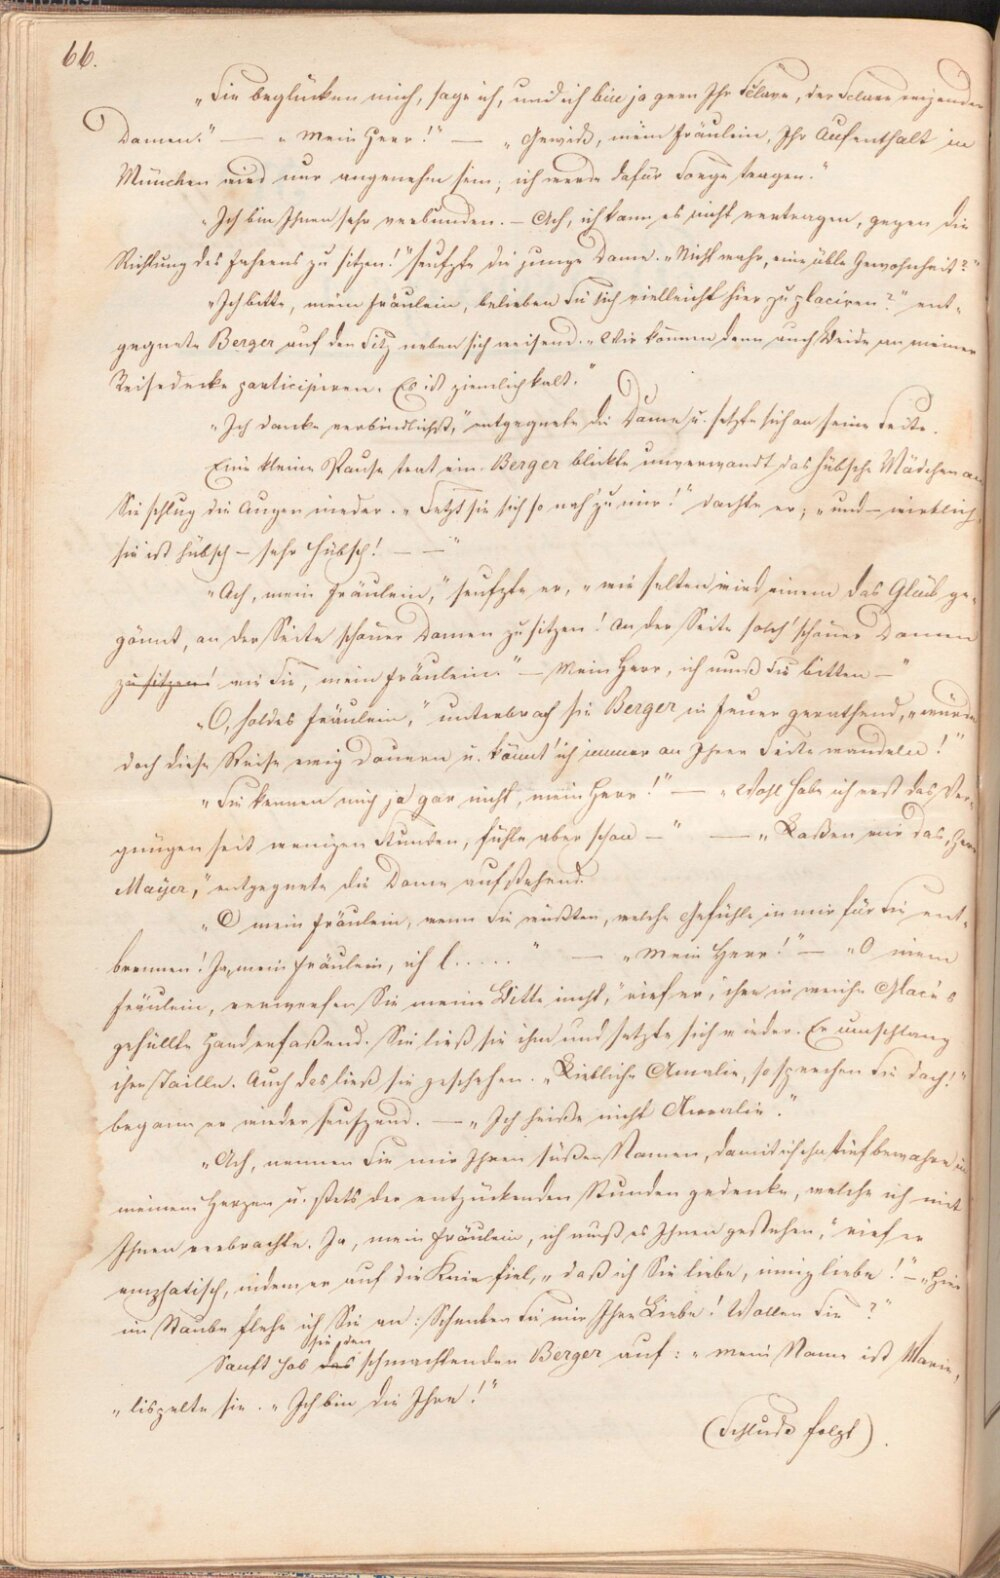 66.
„Sie beglücken mich, sage ich, und ich bin ja gern Ihr Sclave, der Sclave reizender
Damen." — „Mein Herr!" — „Gewiß, mein Fräulein, Ihr Aufenthalt in
München wird nur angenehm sein; ich werde dafür Sorge tragen."
„Ich bin Ihnen sehr verbunden. — Ach, ich kann es nicht vertragen, gegen die
Richtung des Fahrens zu sitzen!" seufzte die junge Dame. „Nicht wahr, eine üble Gewohnheit?"
„Ich bitte, mein Fräulein, belieben Sie sich vielleicht hier zu placiren?" ent-
gegnete Berger auf den Sitz neben sich weisend. „Wir können dann auch Beide an meiner
Reisedecke participiren. Es ist ziemlich kalt."
„Ich danke verbindlichst," entgegnete die Dame u. setzte sich an seine Seite.
Eine kleine Pause trat ein. Berger blickte unverwandt das hübsche Mädchen an
Sie schlug die Augen nieder. „Setzt sie sich so nah' zu mir!" dachte er; „und — wirklich,
sie ist hübsch — sehr hübsch! — —"
„Ach, mein Fräulein," seufzte er, „wie selten wird einem das Glück ge-
gönnt, an der Seite schöner Damen zu sitzen! An der Seite solch' schöner Damen
zu sitzen! wie Sie, mein Fräulein." — Mein Herr, ich muß Sie bitten —"
„O, holdes Fräulein," unterbrach sie Berger in Feuer gerathend, „würde
doch diese Reise ewig dauern u. könnt' ich immer an Ihrer Seite wandeln!"
„Sie kennen mich ja gar nicht, mein Herr!" — „Wohl habe ich erst das Ver-
gnügen seit wenigen Stunden, fühle aber schon —" — „Laßen wir das, Herr
Mayer," entgegnete die Dame aufstehend.
„O mein Fräulein, wenn Sie wüßten, welche Gefühle in mir für Sie ent-
brennen! Ja, mein Fräulein, ich l....." — „Mein Herr!" — „O mein
Fräulein, verwerfen Sie meine Bitte nicht," rief er, ihre in weiche Glacés
gehüllte Hand erfaßend. Sie ließ sie ihm und setzte sich wieder. Er umschlang
ihre Taille. Auch das ließ sie geschehen. „Liebliche Amalie, so sprechen Sie doch!"
begann er wieder seufzend. — „Ich heiße nicht Amalie."
„Ach, nennen Sie mir Ihren süßen Namen, damit ich ihn tief bewahre in
meinem Herzen u. stets der entzückenden Stunden gedenke, welche ich mit
Ihnen verbrachte. Ja, mein Fräulein, ich muß es Ihnen gestehen," rief er
emphatisch, indem er auf die Knie fiel, „daß ich Sie liebe, innig liebe!" — „Hier
im Staube flehe ich Sie an: Schenken Sie mir Ihre Liebe! Wollen Sie?"
Sanft hob das sie den schmachtenden Berger auf: „Mein Name ist Marie,
„lispelte sie. „Ich bin die Ihre!"
(Schluß folgt).